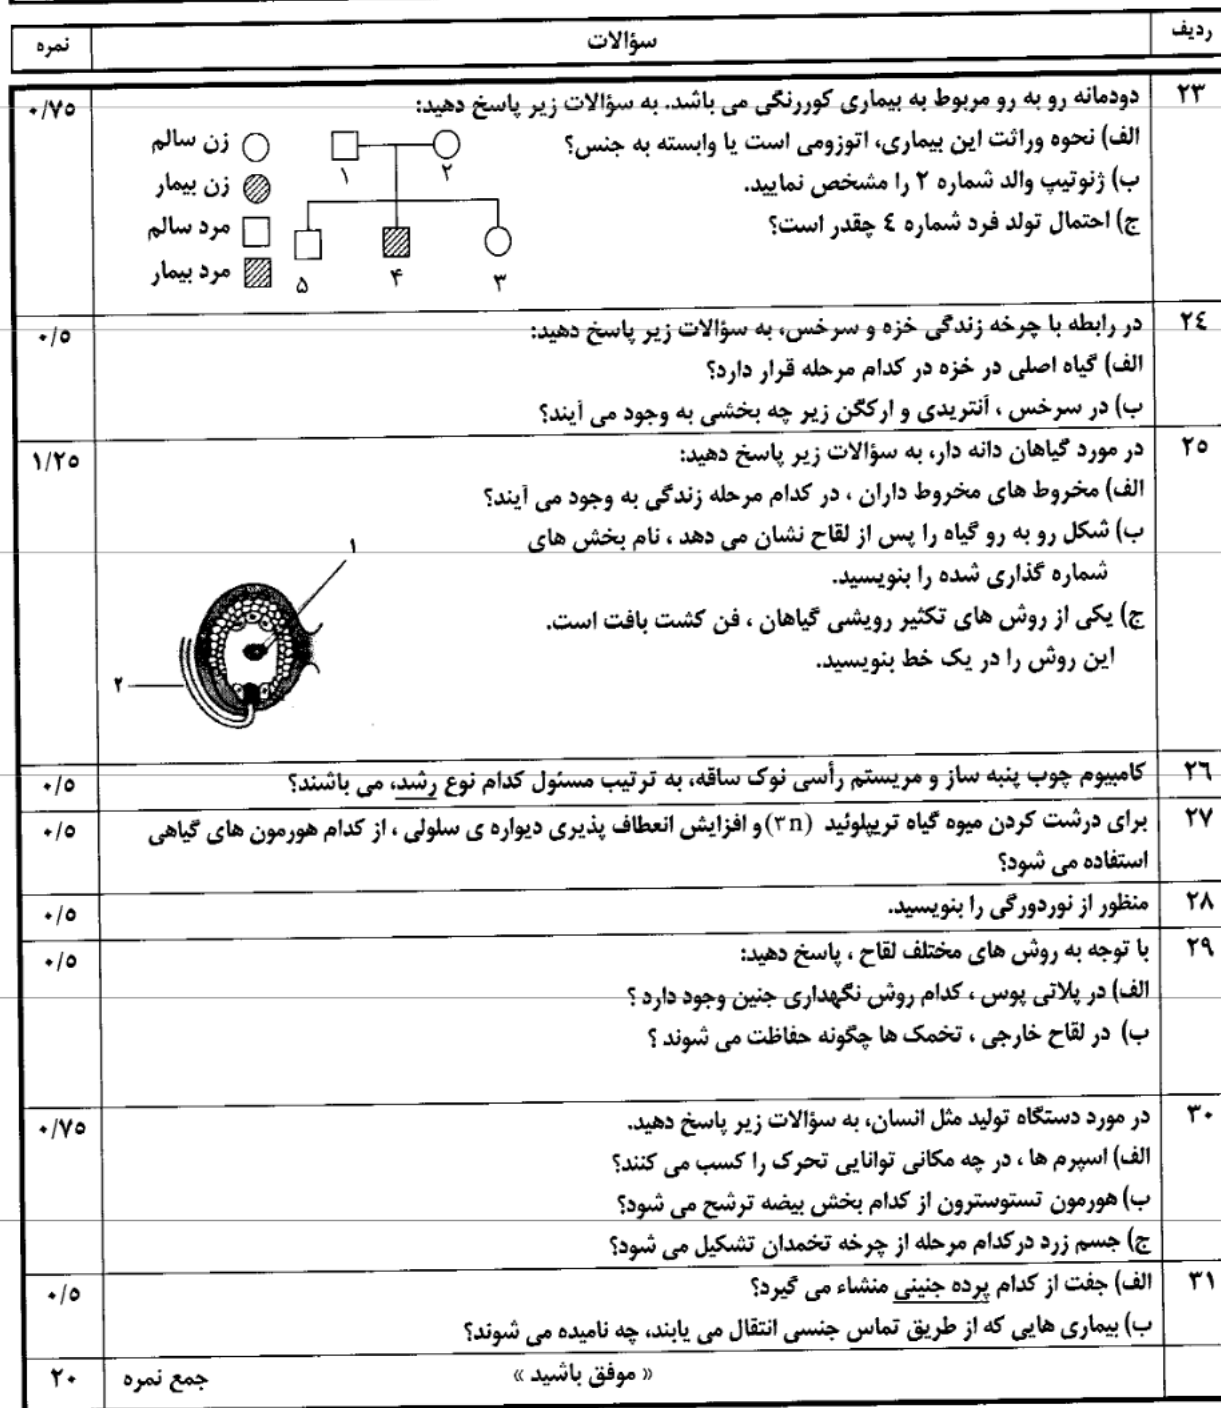 ردیف سؤالات نمره
۲۳ دودمانه رو به رو مربوط به بیماری کوررنگی می باشد. به سؤالات زیر پاسخ دهید: ۰/۷۵
الف) نحوه وراثت این بیماری، اتوزومی است یا وابسته به جنس؟
ب) ژنوتیپ والد شماره ۲ را مشخص نمایید.
ج) احتمال تولد فرد شماره ٤ چقدر است؟
زن سالم
زن بیمار
مرد سالم
مرد بیمار
۱ ۲
۵ ۴ ۳
۲٤ در رابطه با چرخه زندگی خزه و سرخس، به سؤالات زیر پاسخ دهید: ۰/۵
الف) گیاه اصلی در خزه در کدام مرحله قرار دارد؟
ب) در سرخس ، آنتریدی و آرکگن زیر چه بخشی به وجود می آیند؟
۲۵ در مورد گیاهان دانه دار، به سؤالات زیر پاسخ دهید: ۱/۲۵
الف) مخروط های مخروط داران ، در کدام مرحله زندگی به وجود می آیند؟
ب) شکل رو به رو گیاه را پس از لقاح نشان می دهد ، نام بخش های
شماره گذاری شده را بنویسید.
ج) یکی از روش های تکثیر رویشی گیاهان ، فن کشت بافت است.
این روش را در یک خط بنویسید.
۱
۲
۲٦ کامبیوم چوب پنبه ساز و مریستم رأسی نوک ساقه، به ترتیب مسئول کدام نوع رشد، می باشند؟ ۰/۵
۲۷ برای درشت کردن میوه گیاه تریپلوئید (۳n) و افزایش انعطاف پذیری دیواره ی سلولی ، از کدام هورمون های گیاهی ۰/۵
استفاده می شود؟
۲۸ منظور از نوردورگی را بنویسید. ۰/۵
۲۹ با توجه به روش های مختلف لقاح ، پاسخ دهید: ۰/۵
الف) در پلاتی پوس ، کدام روش نگهداری جنین وجود دارد ؟
ب) در لقاح خارجی ، تخمک ها چگونه حفاظت می شوند ؟
۳۰ در مورد دستگاه تولید مثل انسان، به سؤالات زیر پاسخ دهید. ۰/۷۵
الف) اسپرم ها ، در چه مکانی توانایی تحرک را کسب می کنند؟
ب) هورمون تستوسترون از کدام بخش بیضه ترشح می شود؟
ج) جسم زرد درکدام مرحله از چرخه تخمدان تشکیل می شود؟
۳۱ الف) جفت از کدام پرده جنینی منشاء می گیرد؟ ۰/۵
ب) بیماری هایی که از طریق تماس جنسی انتقال می یابند، چه نامیده می شوند؟
« موفق باشید » جمع نمره ۲۰